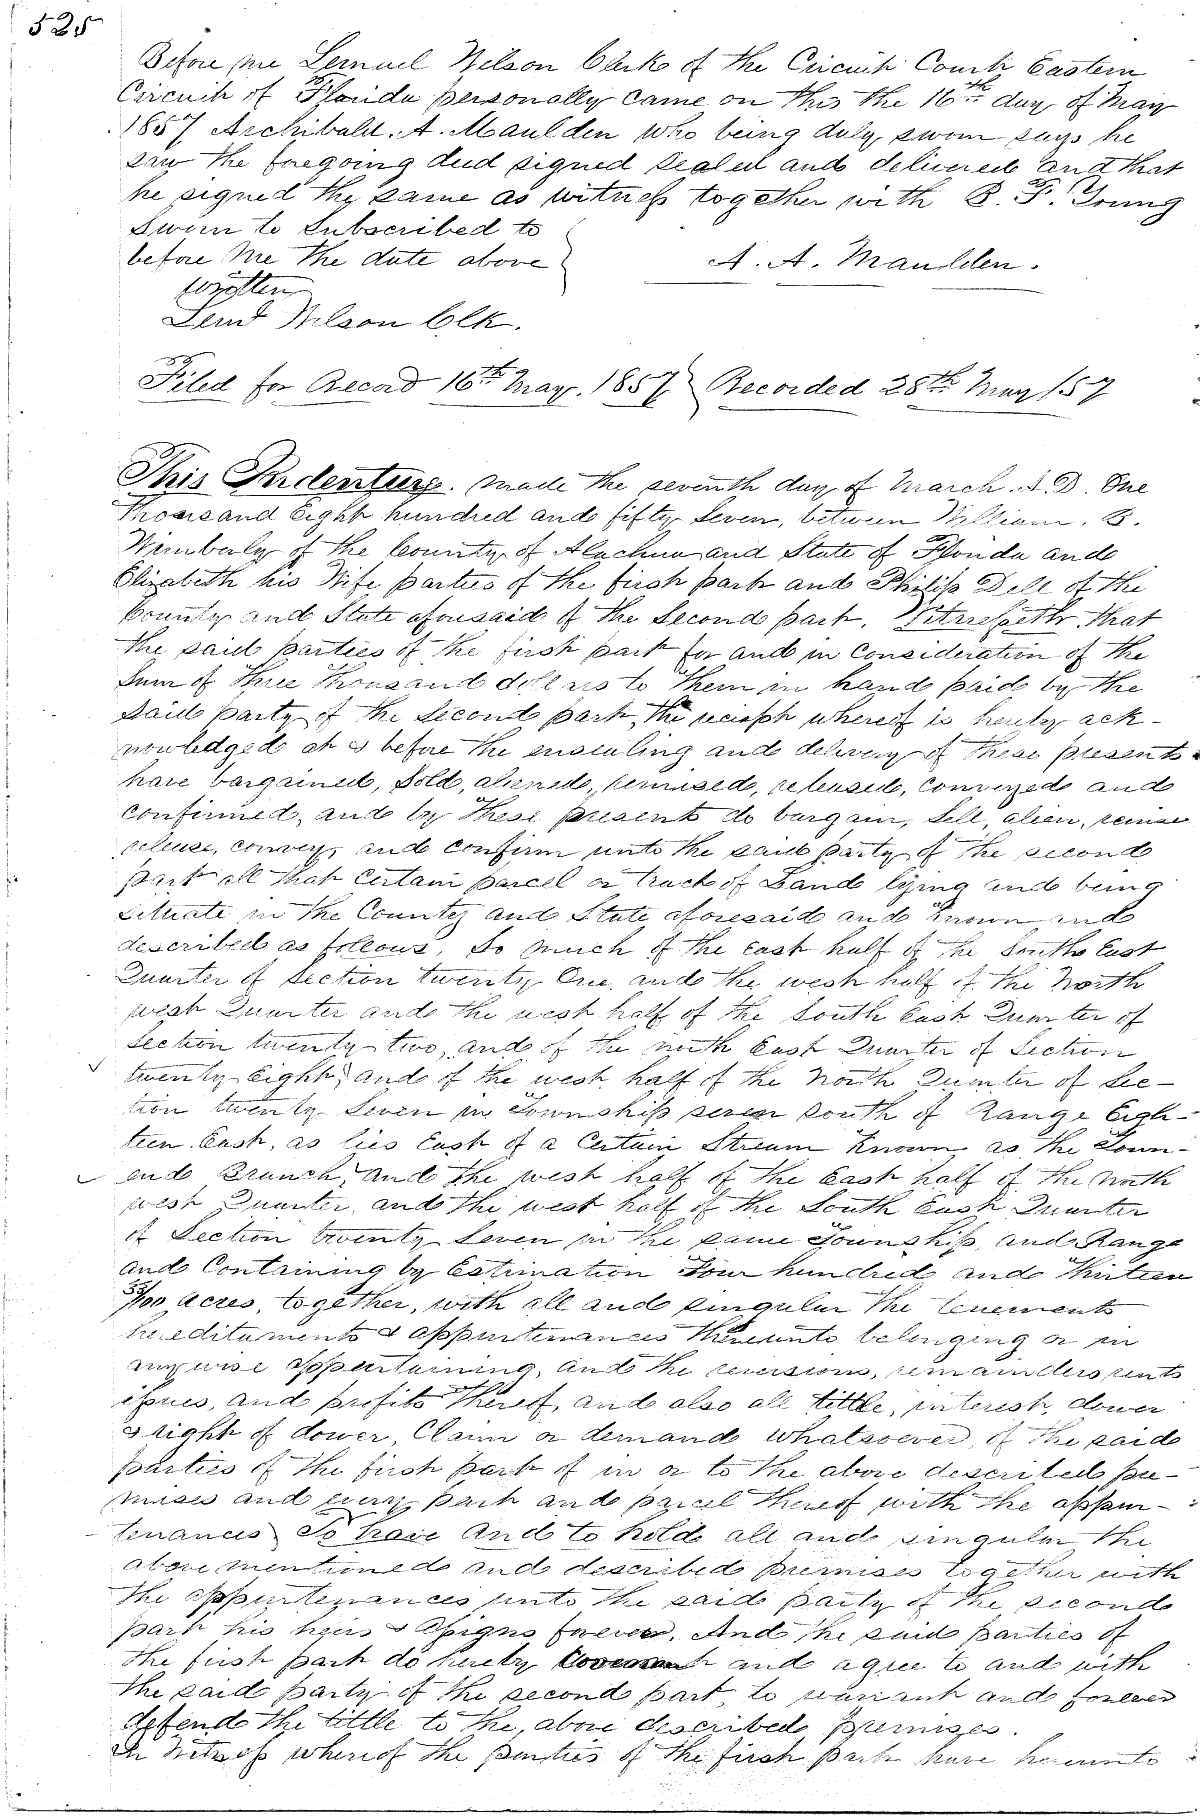 525
Before me Lemuel Wilson Clerk of the Circuit Court Eastern
Circuit of Florida personally came on this the 16th day of May
1857 Archibald. A. Maulden who being duly sworn says he
saw the foregoing deed signed sealed and delivered and that
he signed the same as witness together with B. F. Young
Sworn to Subscribed to
before me the date above
A. A. Maulden.
written
Leml Wilson Clk.
Filed for Record 16th May. 1857 Recorded 28th May /57
This Indenture. made the seventh day of March. A. D. One
Thousand Eight hundred and fifty Seven, between William. B.
Wimberly of the County of Alachua and State of Florida and
Elizabeth his Wife parties of the first part and Philip Dell of the
County and State aforesaid of the Second part. Witnesseth. that
the said parties of the first part for and in Consideration of the
Sum of Three Thousand dollars to them in hand paid by the
said party of the Second part, the reciept whereof is hereby ack-
nowledged at & before the ensealing and delivery of these presents
have bargained, Sold, aliened, remised, released, conveyed and
confirmed, and by these presents do bargain, Sell, alien, remise
release, convey, and confirm unto the said party of the second
part all that certain parcel or track of Land lying and being
situate in the County and State aforesaid and known and
described as follows. So much of the East half of the South East
Quarter of Section twenty One and the west half of the North
west Quarter and the west half of the South East Quarter of
Section twenty two, and of the north East Quarter of Section
twenty Eight, and of the west half of the North Quarter of Sec-
tion twenty Seven in Township seven South of Range Eigh-
teen East, as lies East of a Certain Stream Known as the Town-
end Branch, and the west half of the East half of the North
west Quarter, and the west half of the South East Quarter
of Section twenty Seven in the same Township and Range
and Containing by Estimation Four hundred and Thirteen
/100 acres, together, with all and singular the tenements
hereditaments & appurtenances thereunto belonging or in
anywise appertaining, and the reversions, remainders rents
issues, and profits thereof, and also all tittle, interest, dower
& right of dower, Claim or demand whatsoever, of the said
parties of the first part of in or to the above described pre-
mises and every part and parcel thereof with the appur-
tenances To have and to hold all and singular the
above mentioned and described premises together with
the appurtenances unto the said party of the second
part his heirs & assigns forever. And the said parties of
the first part do hereby Covenant and agree to and with
the said party of the second part, to warrant and forever
defend the tittle to the, above described premises.
In Witness whereof the parties of the first part have hereunto